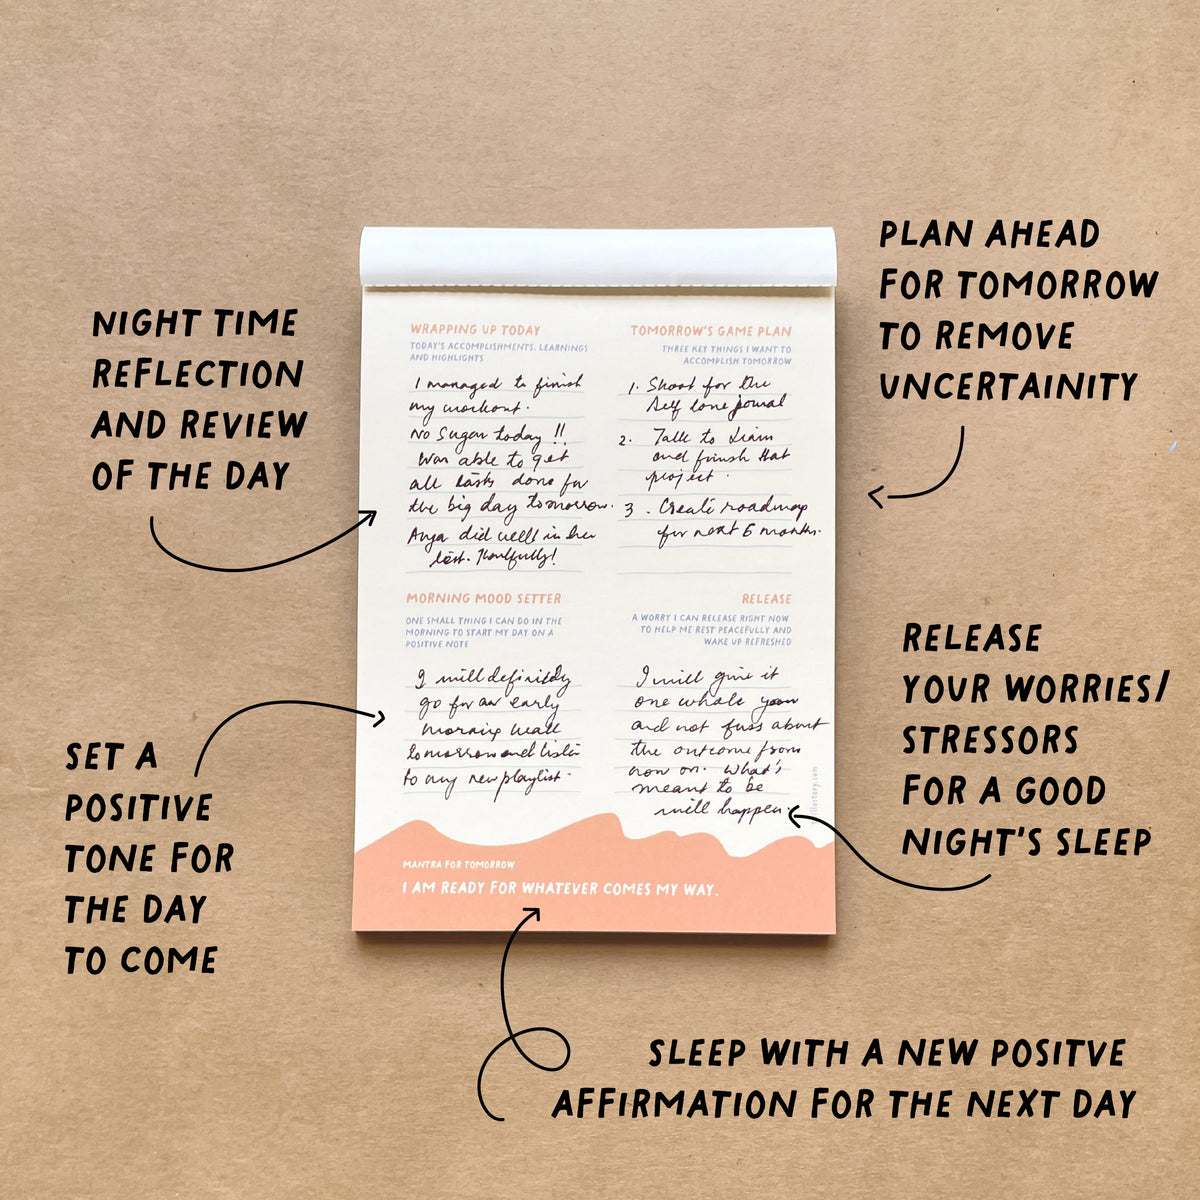 PLAN AHEAD
FOR TOMORROW
TO REMOVE
UNCERTAINITY
NIGHT TIME
REFLECTION
AND REVIEW
OF THE DAY
WRAPPING UP TODAY
TODAY'S ACCOMPLISHMENTS, LEARNINGS
AND HIGHLIGHTS
I managed to finish
my workout.
No Sugar today !!
Was able to get
all tasks done for
the big day tomorrow.
Anya did well in her
test. Thankfully!
TOMORROW'S GAME PLAN
THREE KEY THINGS I WANT TO
ACCOMPLISH TOMORROW
1. Shoot for the
Self love journal
2. Talk to Liam
and finish that
project.
3. Create roadmap
for next 6 months.
MORNING MOOD SETTER
ONE SMALL THING I CAN DO IN THE
MORNING TO START MY DAY ON A
POSITIVE NOTE
I will definitely
go for an early
morning walk
tomorrow and listen
to my new playlist.
RELEASE
A WORRY I CAN RELEASE RIGHT NOW
TO HELP ME REST PEACEFULLY AND
WAKE UP REFRESHED
I will give it
one whole year
and not fuss about
the outcome from
now on. What's
meant to be
will happen.
MANTRA FOR TOMORROW
I AM READY FOR WHATEVER COMES MY WAY.
RELEASE
YOUR WORRIES/
STRESSORS
FOR A GOOD
NIGHT'S SLEEP
SET A
POSITIVE
TONE FOR
THE DAY
TO COME
SLEEP WITH A NEW POSITVE
AFFIRMATION FOR THE NEXT DAY